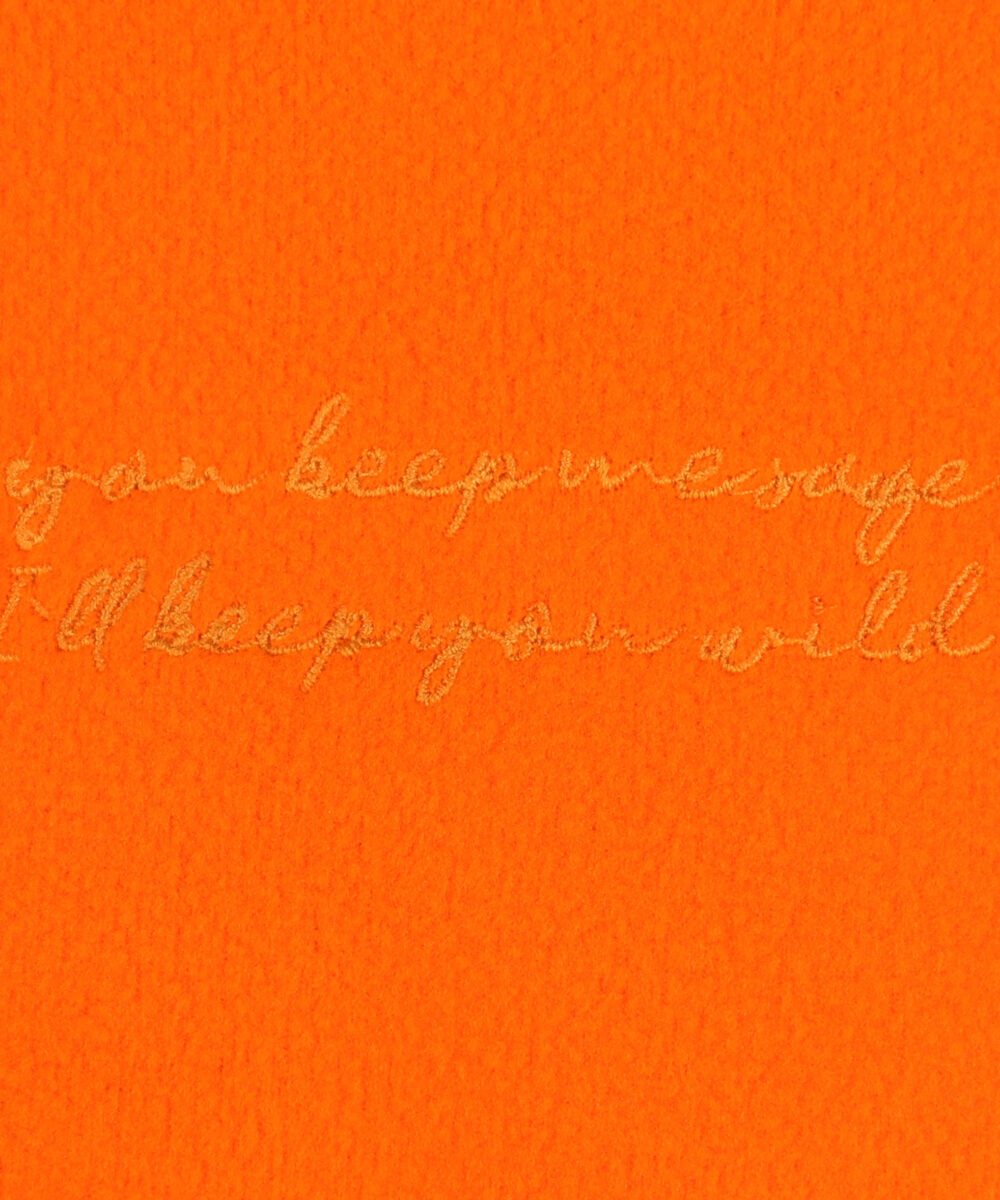 you keep me safe
I'll keep you wild